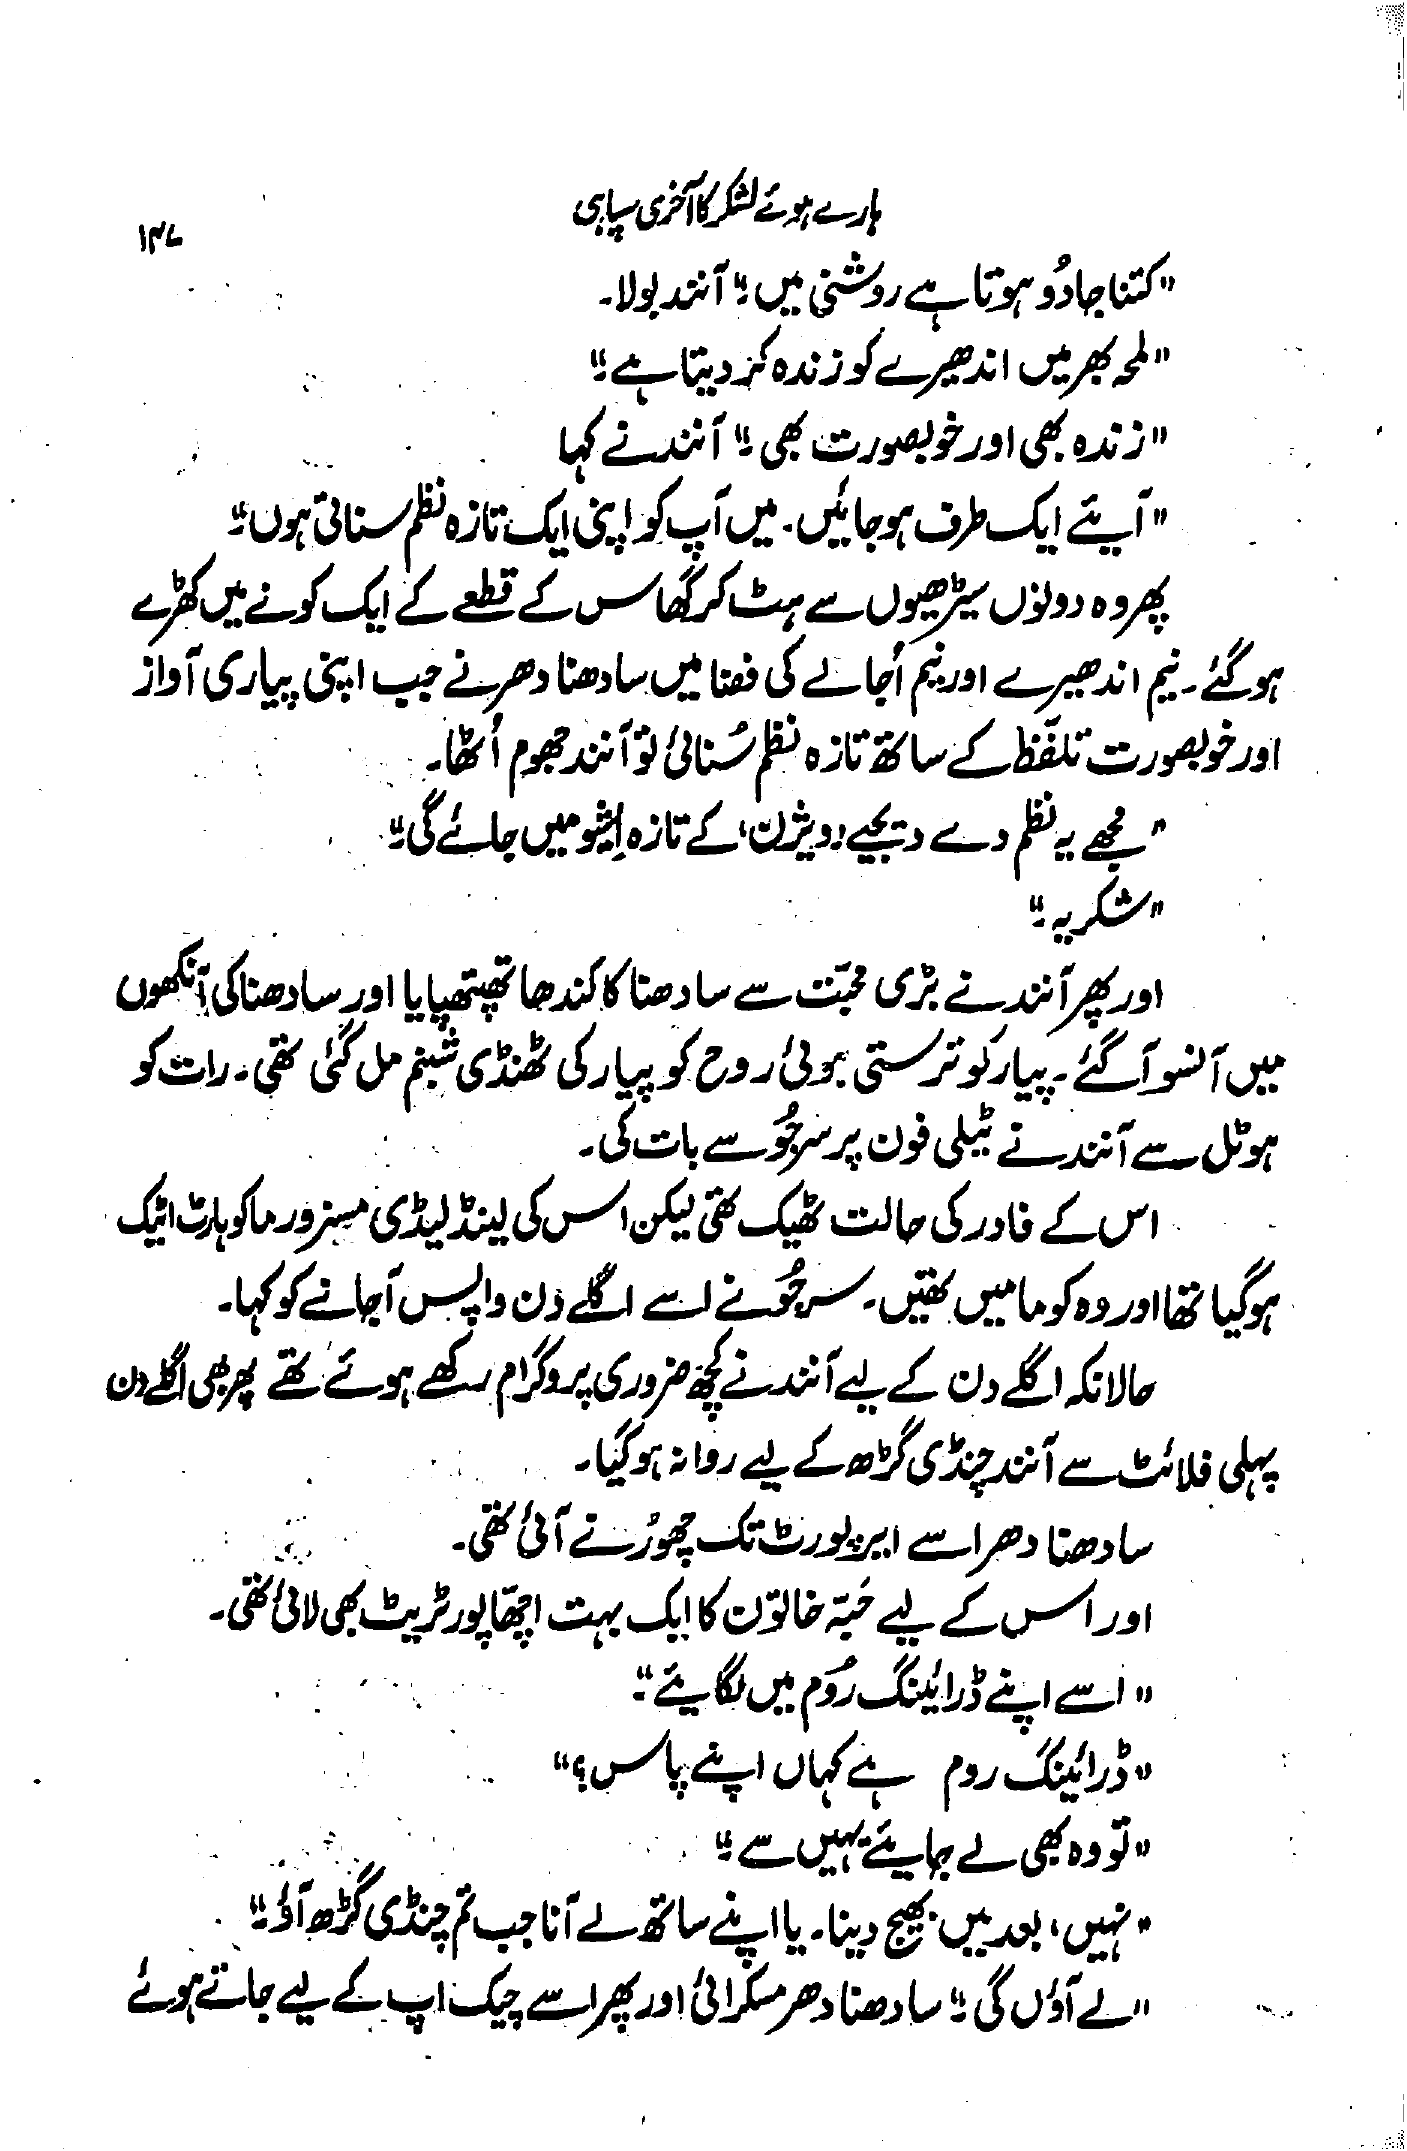 ہارے ہوئے لشکر کا آخری سپاہی
۱۴۷
"کتنا جادُو ہوتا ہے روشنی میں۔" آنند بولا۔
"لمحہ بھر میں اندھیرے کو زندہ کر دیتا ہے۔"
"زندہ بھی اور خوبصورت بھی۔" آنند نے کہا
"آیئے ایک طرف ہو جائیں۔ میں آپ کو اپنی ایک تازہ نظم سناتی ہوں۔"
پھر وہ دونوں سیڑھیوں سے ہٹ کر گھاس کے قطعے کے ایک کونے میں کھڑے
ہو گئے۔ نیم اندھیرے اور نیم اُجالے کی فضا میں سادھنا دھر نے جب اپنی پیاری آواز
اور خوبصورت تلفّظ کے ساتھ تازہ نظم سُنائی تو آنند جھوم اُٹھا۔
"مجھے یہ نظم دے دیجیے، 'ویژن' کے تازہ اِشو میں جائے گی۔"
"شکریہ۔"
اور پھر آنند نے بڑی محبّت سے سادھنا کا کندھا تھپتھپایا اور سادھنا کی آنکھوں
میں آنسو آ گئے۔ پیار کو ترستی ہوئی روح کو پیار کی ٹھنڈی شبنم مل گئی تھی۔ رات کو
ہوٹل سے آنند نے ٹیلی فون پر سرجُو سے بات کی۔
اس کے فادر کی حالت ٹھیک تھی لیکن اس کی لینڈ لیڈی مسز ورما کو ہارٹ اٹیک
ہو گیا تھا اور وہ کوما میں تھیں۔ سرجُو نے اسے اگلے دن واپس آ جانے کو کہا۔
حالانکہ اگلے دن کے لیے آنند نے کچھ ضروری پروگرام رکھے ہوئے تھے پھر بھی اگلے دن
پہلی فلائٹ سے آنند چنڈی گڑھ کے لیے روانہ ہو گیا۔
سادھنا دھر اسے ایرپورٹ تک چھوڑنے آئی تھی۔
اور اس کے لیے حَبّہ خاتون کا ایک بہت اچھّا پورٹریٹ بھی لائی تھی۔
"اسے اپنے ڈرائینگ رُوم میں لگایئے۔"
"ڈرائینگ روم ہے کہاں اپنے پاس؟"
"تو وہ بھی لے جایئے یہیں سے۔"
"نہیں، بعد میں بھیج دینا۔ یا اپنے ساتھ لے آنا جب تم چنڈی گڑھ آؤ۔"
"لے آؤں گی۔" سادھنا دھر مسکرائی اور پھر اسے چیک اپ کے لیے جاتے ہوئے